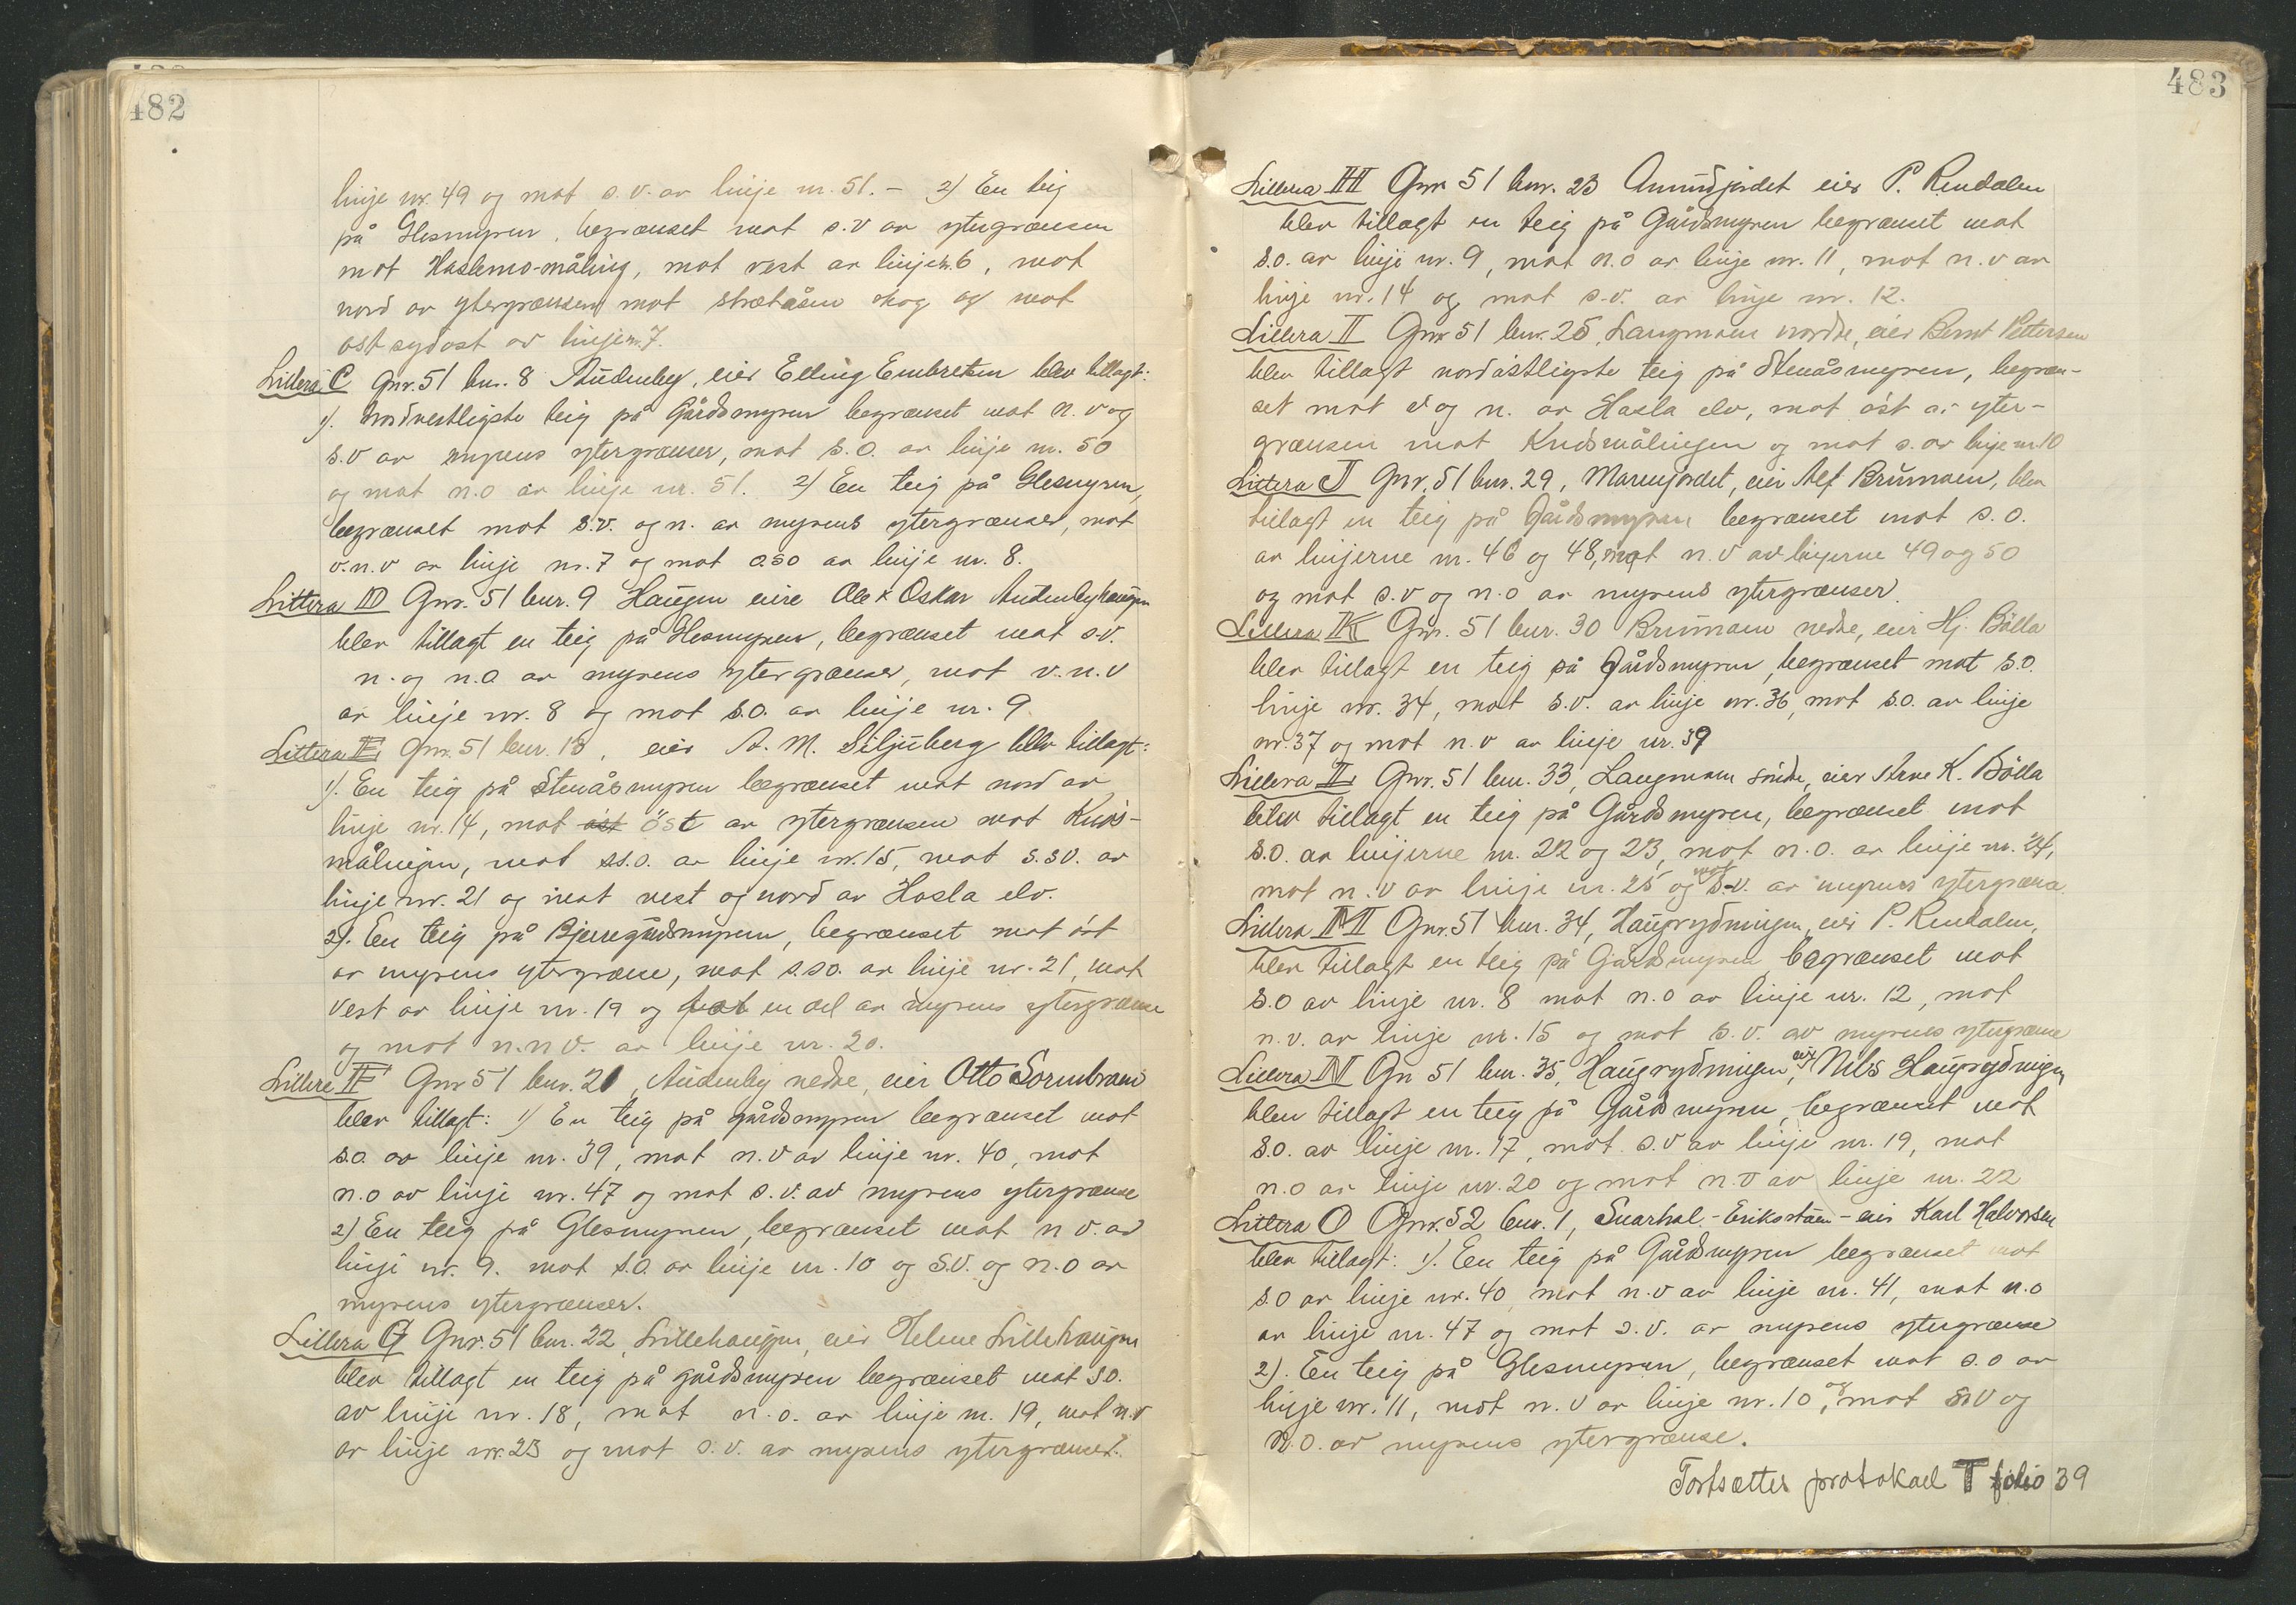 482
linje nr. 49 og mot s.v. av linje nr. 51. – 2) En teig
på Glesmyren, begrænset mot s.v av ytergrænsen
mot Haslemo-måling, mot vest av linje nr. 6, mot
nord av ytergrænsen mot stratåsen skog og mot
ost sydost av linje nr. 7.
Littera C Gnr. 51 bnr. 8 Audenby, eier Elling Embretsen blev tillagt:
1). Nordvestligste teig på Gårdsmyren begrænset mot n.v og
s.v av myrens ytergrænser, mot s.o. av linje nr. 50
og mot n.o av linje nr. 51. 2) En teig på Glesmyren,
begrænset mot s.v. og n. av myrens ytergrænser, mot
v.n.v av linje nr. 7 og mot oso av linje nr. 8.
Littera D Gnr. 51 bnr. 9 Haugen eiere Ole & Oskar Audenbyhaugen
blev tillagt en teig på Glesmyren, begrænset mot s.v.
n. og n.o av myrens ytergrænser, mot v.n.v
av linje nr. 8 og mot s.o. av linje nr. 9.
Littera E Gnr. 51 bnr. 13, eier A. M. Siljuberg blev tillagt:
1). En teig på Stenåsmyren begrænset mot nord av
linje nr. 14, mot øst öst av ytergrænsen mot Knds-
målingen, mot ss.o. av linje nr. 15, mot s.sv. av
linje nr. 21 og mot vest og nord av Hasla elv.
2). En teig på Bjerregårdsmyren, begrænset mot öst
av myrens ytergrænse, mot s.so. av linje nr. 21, mot
vest av linje nr. 19 og for en del av myrens ytergrænse
og mot n.n.v. av linje nr. 20.
Littera F Gnr 51 bnr. 21, Audenby nedre, eier Otto Sormbraui
blev tillagt: 1) En teig på gårdsmyren begrænset mot
s.o. av linje nr. 39, mot n.v av linje nr. 40, mot
n.o av linje nr. 47 og mot s.v. av myrens ytergrænse
2) En teig på Glesmyren, begrænset mot n v. av
linje nr. 9. mot s.o. av linje nr. 10 og s.v. og n.o av
myrens ytergrænser.
Littera G Gnr. 51 bnr. 22, Lillehaugen, eier Helene Lillehaugen
blev tillagt en teig på gårdsmyren begrænset mot so.
av linje nr. 18, mot n.o. av linje nr. 19, mot n.v
av linje nr. 23 og mot s.v. av myrens ytergrænser.
483
Littera H Gnr 51 bnr. 23 Amundjordet eier P. Rendalen
blev tillagt en teig på Gårdsmyren begrænset mot
s.o. av linje nr. 9, mot n.o av linje nr. 11, mot n.v av
linje nr. 14 og mot s.v. av linje nr. 12.
Littera I Gnr 51 bnr. 25, Langmoen nordre, eier Bernt Pettersen
blev tillagt nordöstligste teig på Stenåsmyren, begræn-
set mot v og n. av Hasla elv, mot öst av yter-
grænsen mot Kndsmålingen og mot s. av linje nr. 10
Littera J Gnr. 51 bnr. 29, Marenjordet, eier Alf Brumoen, blev
tillagt en teig på Gårdsmyren begrænset mot s.o.
av linjerne nr. 46 og 48, mot n.v av linjerne 49 og 50
og mot s.v og n.o av myrens ytergrænser.
Littera K Gnr. 51 bnr. 30 Brumoen nedre, eier Hj. Bölla
blev tillagt en teig på Gårdsmyren, begrænset mot s.o.
linje nr. 34, mot s.v. av linje nr. 36, mot s.o. av linje
nr. 37 og mot n.v av linje nr. 39
Littera L Gnr. 51 bnr. 33, Langmoen söndre, eier Arne K. Bölla
blev tillagt en teig på Gårdsmyren, begrænset mot
s.o. av linjerne nr. 22 og 23, mot n.o. av linje nr. 24,
mot n.v av linje nr. 25 og mot s.v. av myrens ytergræns
Littera M Gnr. 51 bnr. 34, Haugrydningen, eier P. Rendalen,
blev tillagt en teig på Gårdsmyren begrænset mot
s.o av linje nr. 8 mot n.o av linje nr. 12, mot
n.v. av linje nr. 15 og mot s.v. av myrens ytergrænse
Littera N Gn 51 bnr. 35, Haugrydningen, eier Nils Haugrydningen
blev tillagt en teig på Gårdsmyren, begrænset mot
s.o. av linje nr. 17, mot s.v av linje nr. 19, mot
n.o av linje nr. 20 og mot n.v av linje nr. 22
Littera O Gnr. 52 bnr. 1, Snarhol - Eriksstuen - eier Karl Halvorsen
blev tillagt: 1). En teig på Gårdsmyren begrænset mot
s.o av linje nr. 40, mot n.v av linje nr. 41, mot n.o
av linje nr. 47 og mot s.v. av myrens ytergrænse
2). En teig på Glesmyren, begrænset mot s.o av
linje nr. 11, mot n.v av linje nr. 10, og mot s.v og
n.o. av myrens ytergrænse.
Fortsætter protokoll T folio 39